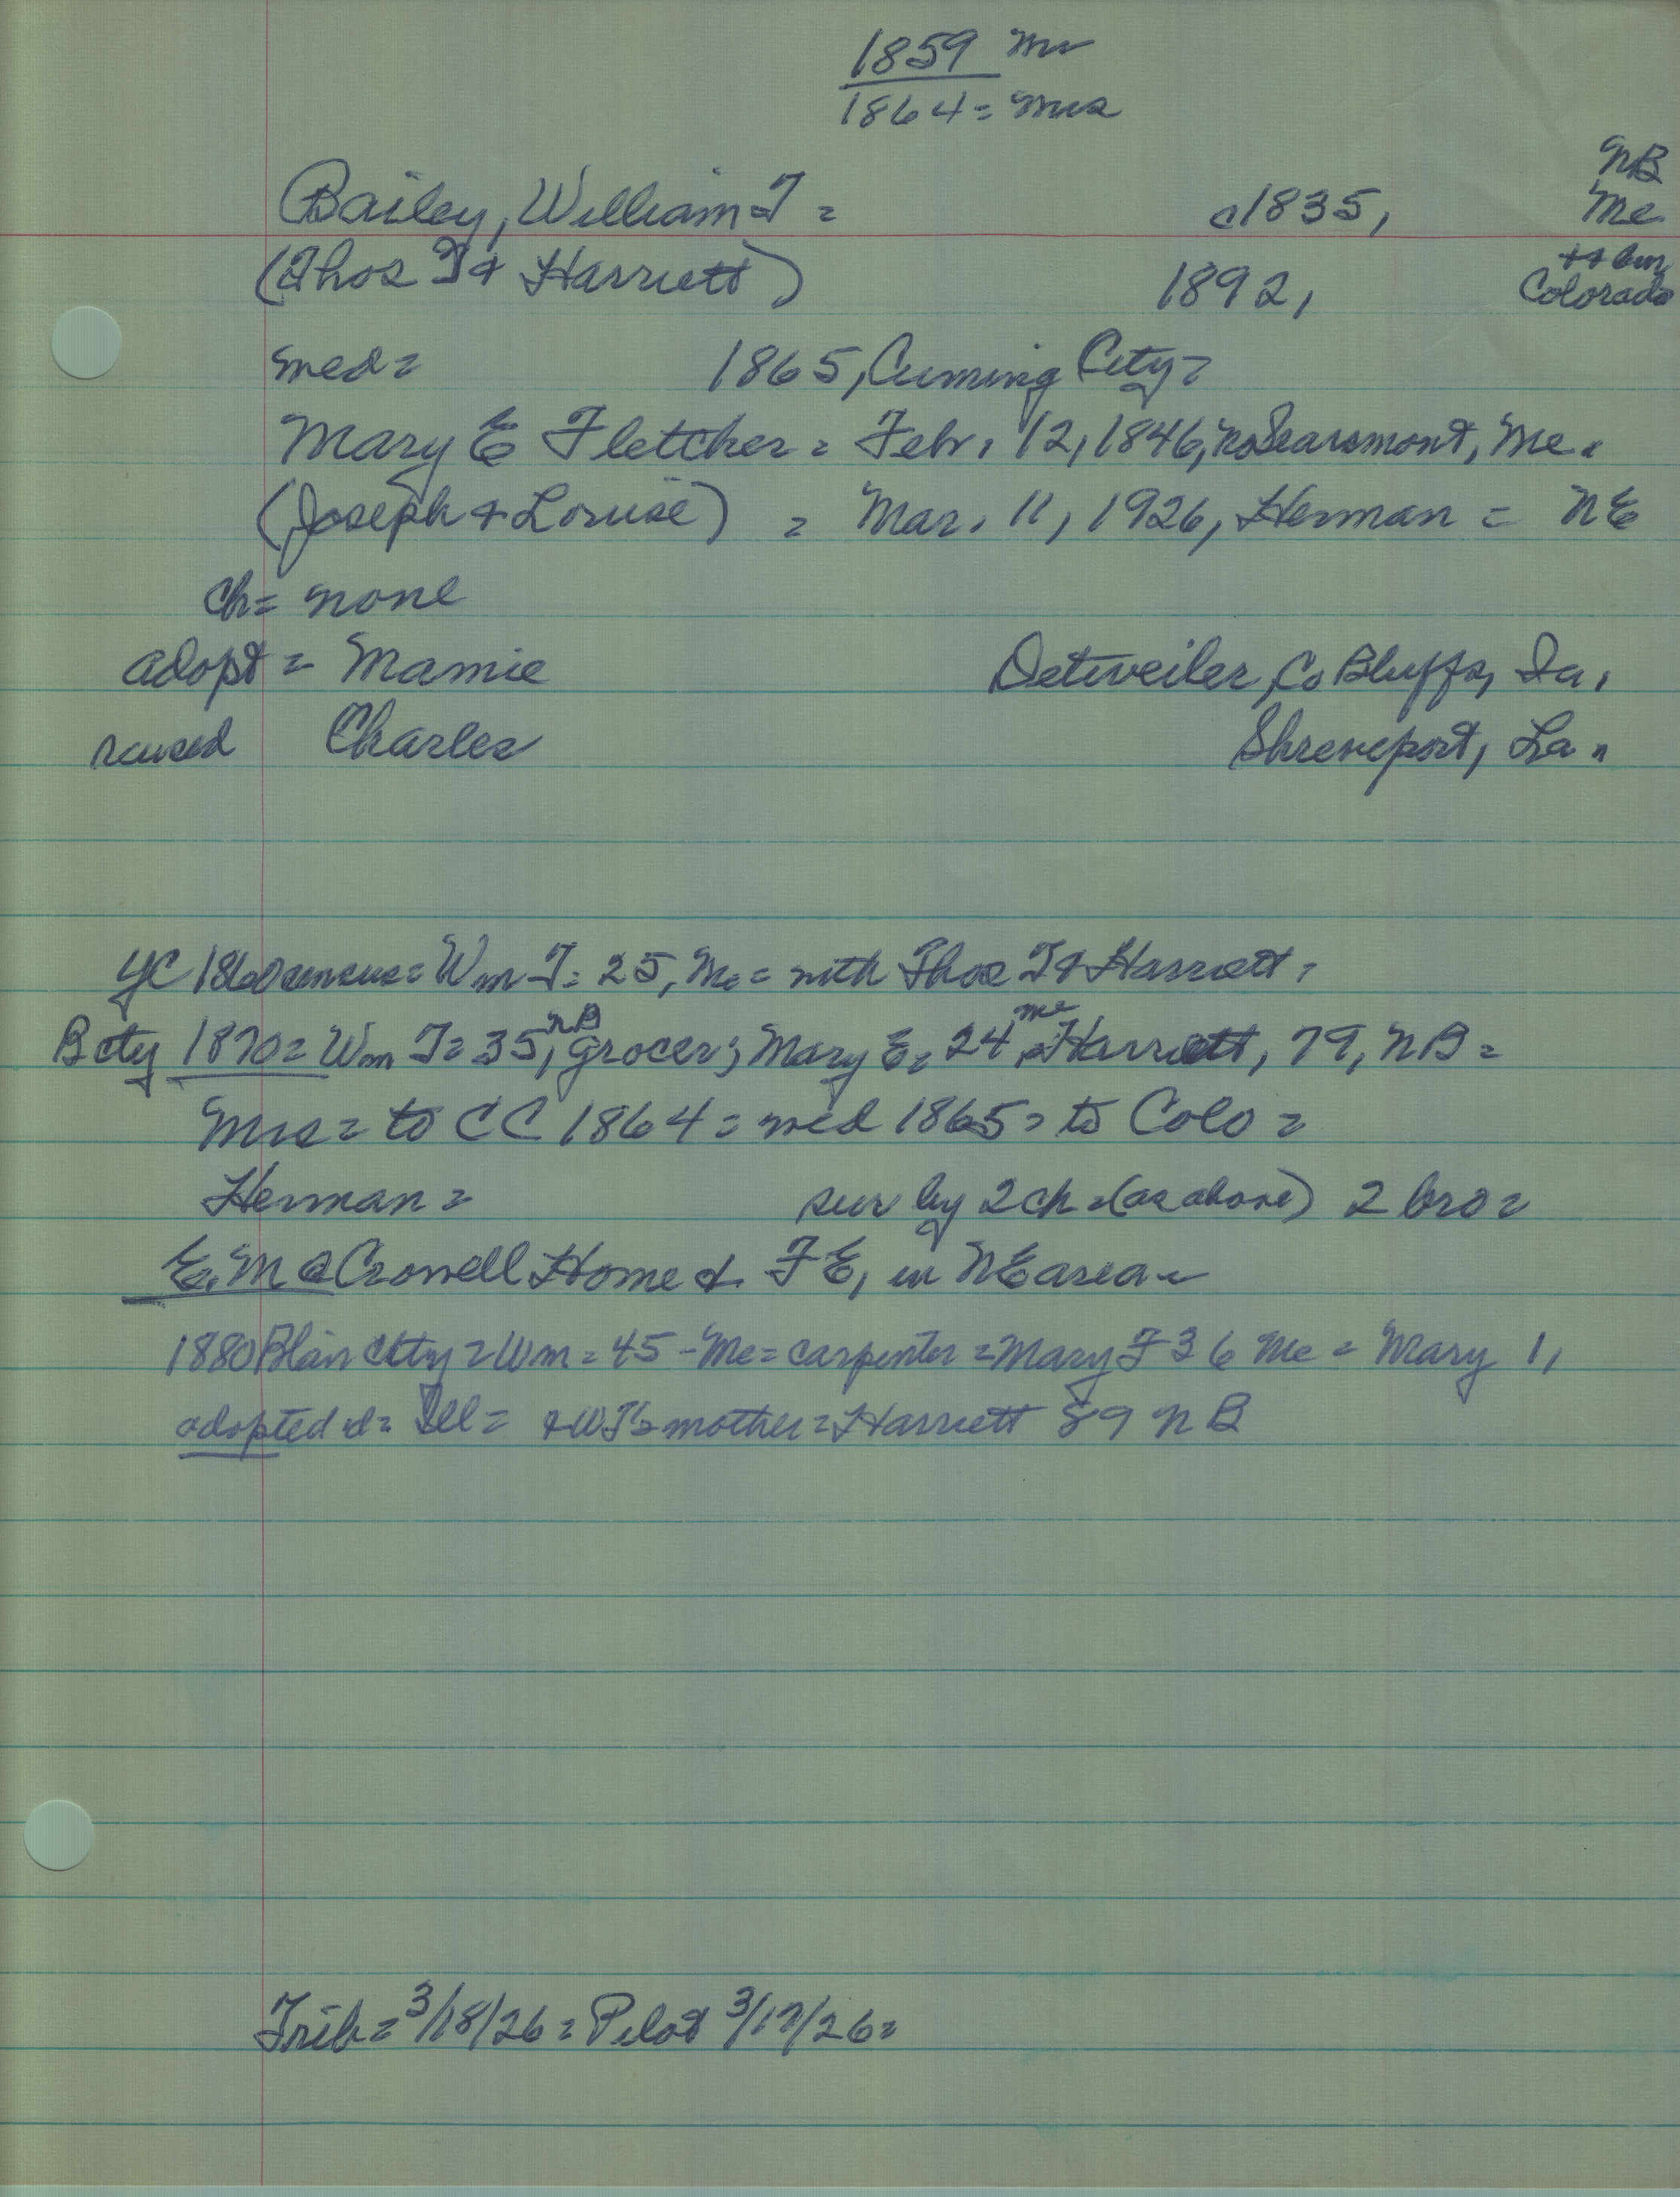 1859 Mr
1864 = Mrs
NB
Bailey, William T = c1835, Me.
(Thos T + Harriett) 1892, Colorado
med = 1865, Cuming City =
Mary E Fletcher = Febr. 12, 1846, Searsmont, Me.
(Joseph + Louise) = Mar. 11, 1926, Herman = NE
ch = none
adopt = Mamie Detweiler, Co Bluffs, Ia.
raised Charles Shreveport, La.
1860 census = Wm T = 25, Me = with Thos T + Harriett =
NB Me
B cty 1870 = Wm T = 35, grocer; Mary E = 24, Harriett, 79, NB =
Mrs = to CC 1864 = med 1865 = to Colo =
Herman = sur by 2 ch = (as above) 2 bro =
E. M @ Crowell Home + F E, in NE area
1880 Blair City = Wm = 45 - Me = carpenter = Mary F 36 Me = Mary 1,
adopted d = Ill = + WT's mother = Harriett 89 NB
Trib = 3/18/26 = Pilot 3/17/26 =